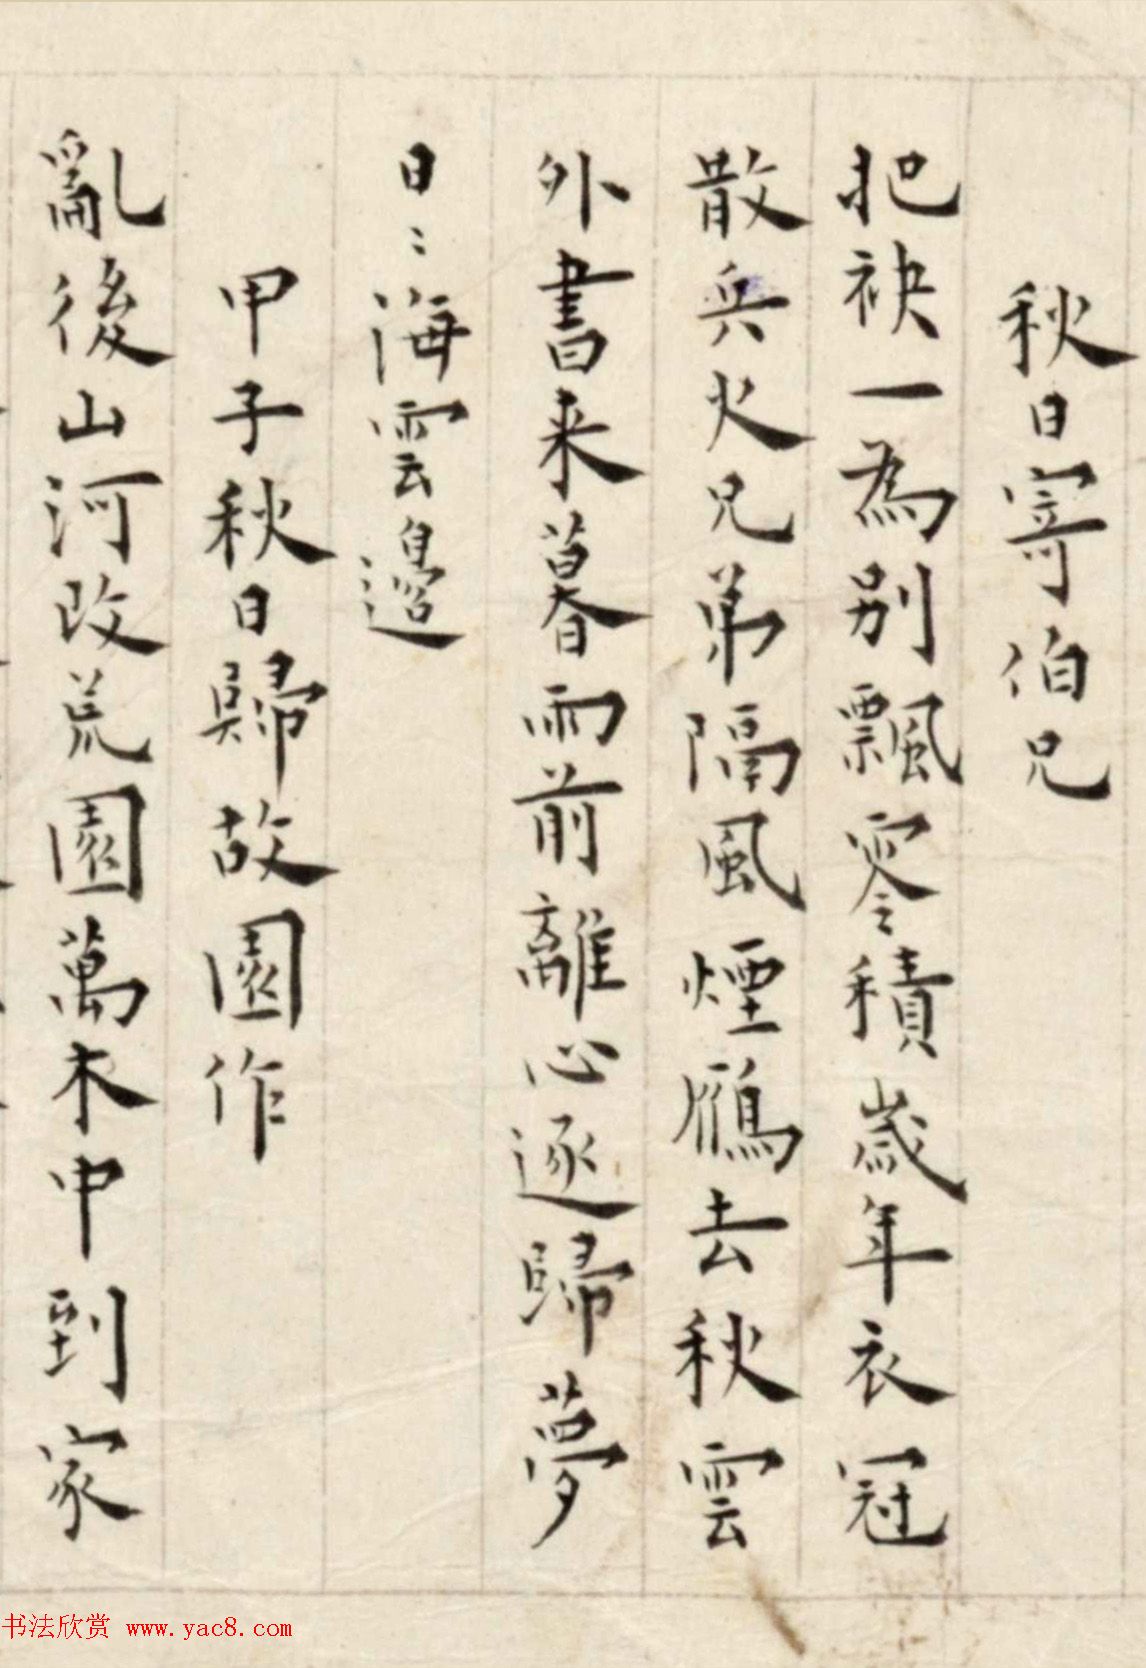 秋日寄伯兄
把袂一為别飄零積歲年衣冠
散兵火兄弟隔風煙鴈去秋雲
外書来暮雨前離心逐歸夢
日〻海雲邊
甲子秋日歸故園作
亂後山河改荒園萬木中到家
书法欣赏 www.yac8.com